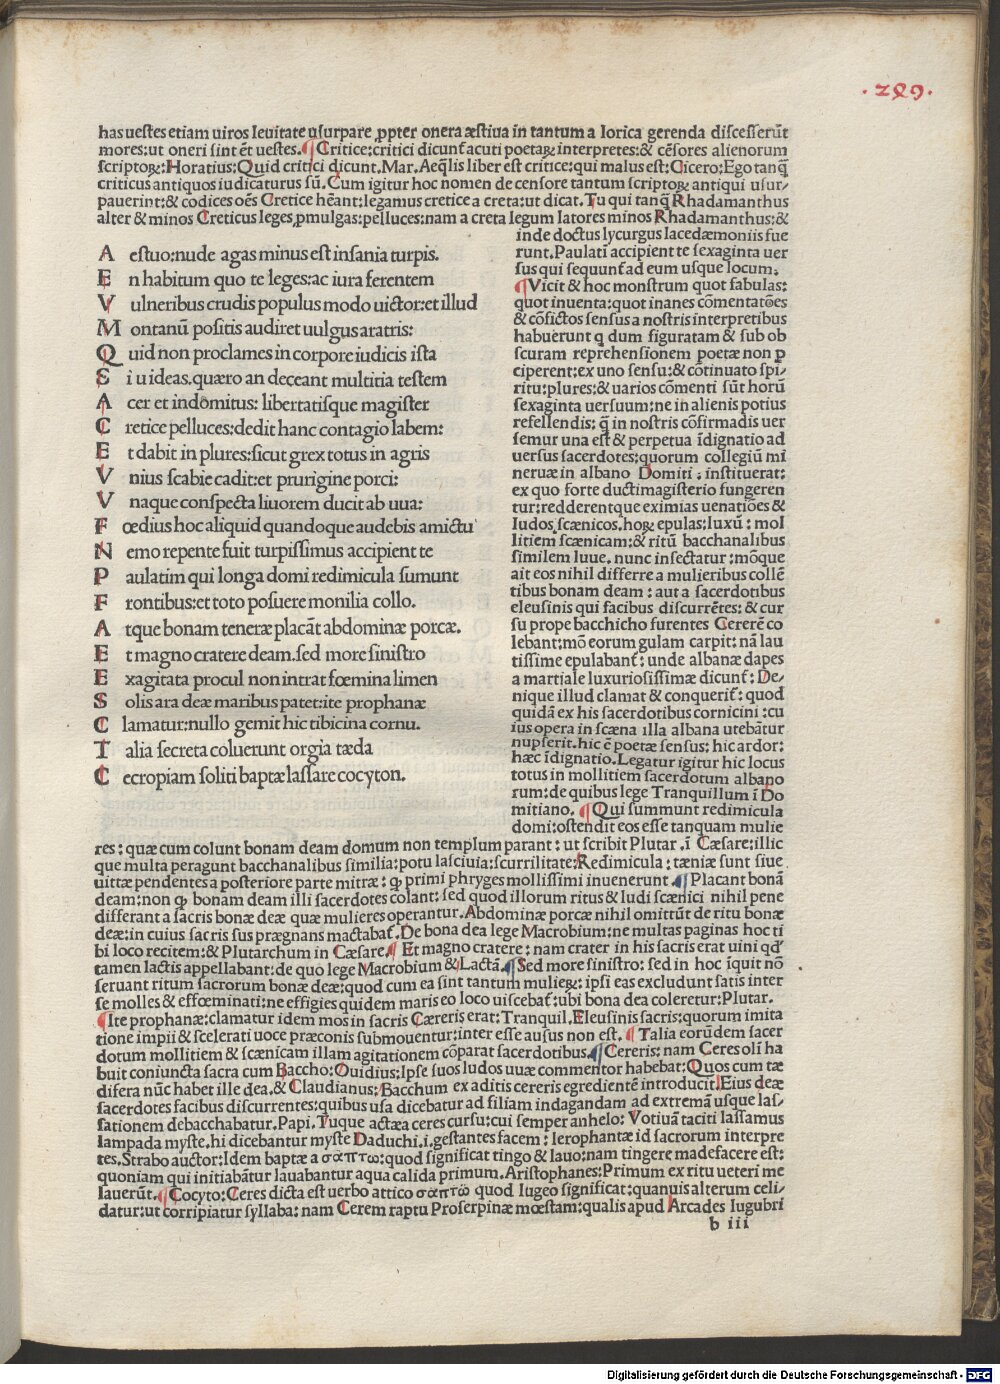 .289.
has uestes etiam uiros leuitate usurpare ꝓpter onera æstiua in tantum a lorica gerenda discesserūt
mores:ut oneri sint ēt uestes.¶Critice:critici dicunt᷑ acuti poetaꝝ interpretes:& cēsores alienorum
scriptoꝝ:Horatius:Quid critici dicunt.Mar.Aeq̄lis liber est critice:qui malus est:Cicero:Ego tanq̄
criticus antiquos iudicaturus sū.Cum igitur hoc nomen de censore tantum scriptoꝝ antiqui usur-
pauerint:& codices oēs Cretice hēant:legamus cretice a creta:ut dicat.Tu qui tanq̄ Rhadamanthus
alter & minos Creticus leges ꝓmulgas:pelluces:nam a creta legum latores minos Rhadamanthus:&
A estuo:nude agas minus est insania turpis.
E n habitum quo te leges:ac iura ferentem
V ulneribus crudis populus modo uictor:et illud
M ontanū positis audiret uulgus aratris:
Q uid non proclames in corpore iudicis ista
S i uideas.quæro an deceant multitia testem
A cer et indomitus: libertatisque magister
C retice pelluces:dedit hanc contagio labem:
E t dabit in plures:sicut grex totus in agris
V nius scabie cadit:et prurigine porci:
V naque conspecta liuorem ducit ab uua:
F oedius hoc aliquid quandoque audebis amictu
N emo repente fuit turpissimus accipient te
P aulatim qui longa domi redimicula sumunt
F rontibus:et toto posuere monilia collo.
A tque bonam teneræ placāt abdominæ porcæ.
E t magno cratere deam.sed more sinistro
E xagitata procul non intrat fœmina limen
S olis ara deæ maribus patet:ite prophanæ
C lamatur:nullo gemit hic tibicina cornu.
T alia secreta coluerunt orgia tæda
C ecropiam soliti baptæ lassare cocyton.
inde doctus lycurgus lacedæmoniis fue
runt.Paulati accipient te sexaginta uer
sus qui sequunt᷑ ad eum usque locum.
¶Vicit & hoc monstrum quot fabulas:
quot inuenta:quot inanes cōmentatōes
& cōfictos sensus a nostris interpretibus
habuerunt q dum figuratam & sub ob
scuram reprehensionem poetæ non p
ciperent:ex uno sensu:& cōtinuato spi-
ritu:plures:& uarios cōmenti sūt horū
sexaginta uersuum:ne in alienis potius
refellendis: q̄ in nostris cōfirmadis uer
semur una est & perpetua īdignatio ad
uersus sacerdotes:quorum collegiū mi
neruæ in albano Domiti . instituerat:
ex quo forte ducti magisterio fungeren
tur:redderentque eximias uenatiōes &
ludos scænicos.hoꝝ epulas:luxū: mol
litiem scænicam:& ritū bacchanalibus
similem Iuue. nunc insectatur:mōque
ait eos nihil differre a mulieribus collē
tibus bonam deam: aut a sacerdotibus
eleusinis qui facibus discurrētes:& cur
su prope bacchicho furentes Cererē co
lebant:mō eorum gulam carpit:nā lau
tissime epulabant᷑: unde albanæ dapes
a martiale luxuriosissimæ dicunt᷑: De-
nique illud clamat & conquerit᷑: quod
quidā ex his sacerdotibus cornicini :cu
ius opera in scæna illa albana utebātur
nupserit.hic ē poetæ sensus: hic ardor:
hæc īdignatio.Legatur igitur hic locus
totus in mollitiem sacerdotum albano
rum:de quibus lege Tranquillum ī Do
mitiano. ¶Qui summunt redimicula
domi:ostendit eos esse tanquam mulie
res: quæ cum colunt bonam deam domum non templum parant: ut scribit Plutar .ī Cæsare:illic
que multa peragunt bacchanalibus similia:potu lasciuia:scurrilitate:Redimicula : tæniæ sunt siue
uittæ pendentes a posteriore parte mitræ: ꝙ primi phryges mollissimi inuenerunt .¶Placant bonā
deam:non ꝙ bonam deam illi sacerdotes colant: sed quod illorum ritus & ludi scænici nihil pene
differant a sacris bonæ deæ quæ mulieres operantur.Abdominæ porcæ nihil omittūt de ritu bonæ
deæ:in cuius sacris sus prægnans mactabat᷑.De bona dea lege Macrobium:ne multas paginas hoc ti
bi loco recitem:& Plutarchum in Cæsare.¶ Et magno cratere: nam crater in his sacris erat uini qđ
tamen lactis appellabant:de quo lege Macrobium & Lactā.¶Sed more sinistro: sed in hoc īquit nō
seruant ritum sacrorum bonæ deæ:quod cum ea sint tantum mulieꝝ: ipsi eas excludunt satis inter
se molles & effœminati:ne effigies quidem maris eo loco uiscebat᷑:ubi bona dea coleretur:Plutar.
¶Ite prophanæ:clamatur idem mos in sacris Cæreris erat:Tranquil.Eleusinis sacris:quorum imita
tione impii & scelerati uoce præconis submouentur:inter esse ausus non est. ¶Talia eorūdem sacer
dotum mollitiem & scænicam illam agitationem cōparat sacerdotibus.¶Cereris: nam Ceres olī ha
buit coniuncta sacra cum Baccho:Ouidius:Ipse suos ludos uuæ commentor habebat:Quos cum tæ
difera nūc habet ille dea.& Claudianus:Bacchum ex aditis cereris egredientē introducit.Eius deæ
sacerdotes facibus discurrentes:quibus usa dicebatur ad filiam indagandam ad extremā usque las-
sationem debacchabatur.Papi.Tuque actæa ceres cursu:cui semper anhelo: Votiuā taciti lassamus
lampada myste.hi dicebantur myste Daduchi.i.gestantes facem: Ierophantæ id sacrorum interpre
tes.Strabo auctor:Idem baptæ a σάπτω:quod significat tingo & lauo:nam tingere madefacere est:
quoniam qui initiabātur lauabantur aqua calida primum.Aristophanes:Primum ex ritu ueteri me
lauerūt.¶Cocyto:Ceres dicta est uerbo attico σάπτω quod lugeo significat:quanuis alterum celi-
datur:ut corripiatur syllaba: nam Cerem raptu Proserpinæ mœstam:qualis apud Arcades lugubri
b iii
Digitalisierung gefördert durch die Deutsche Forschungsgemeinschaft - DFG